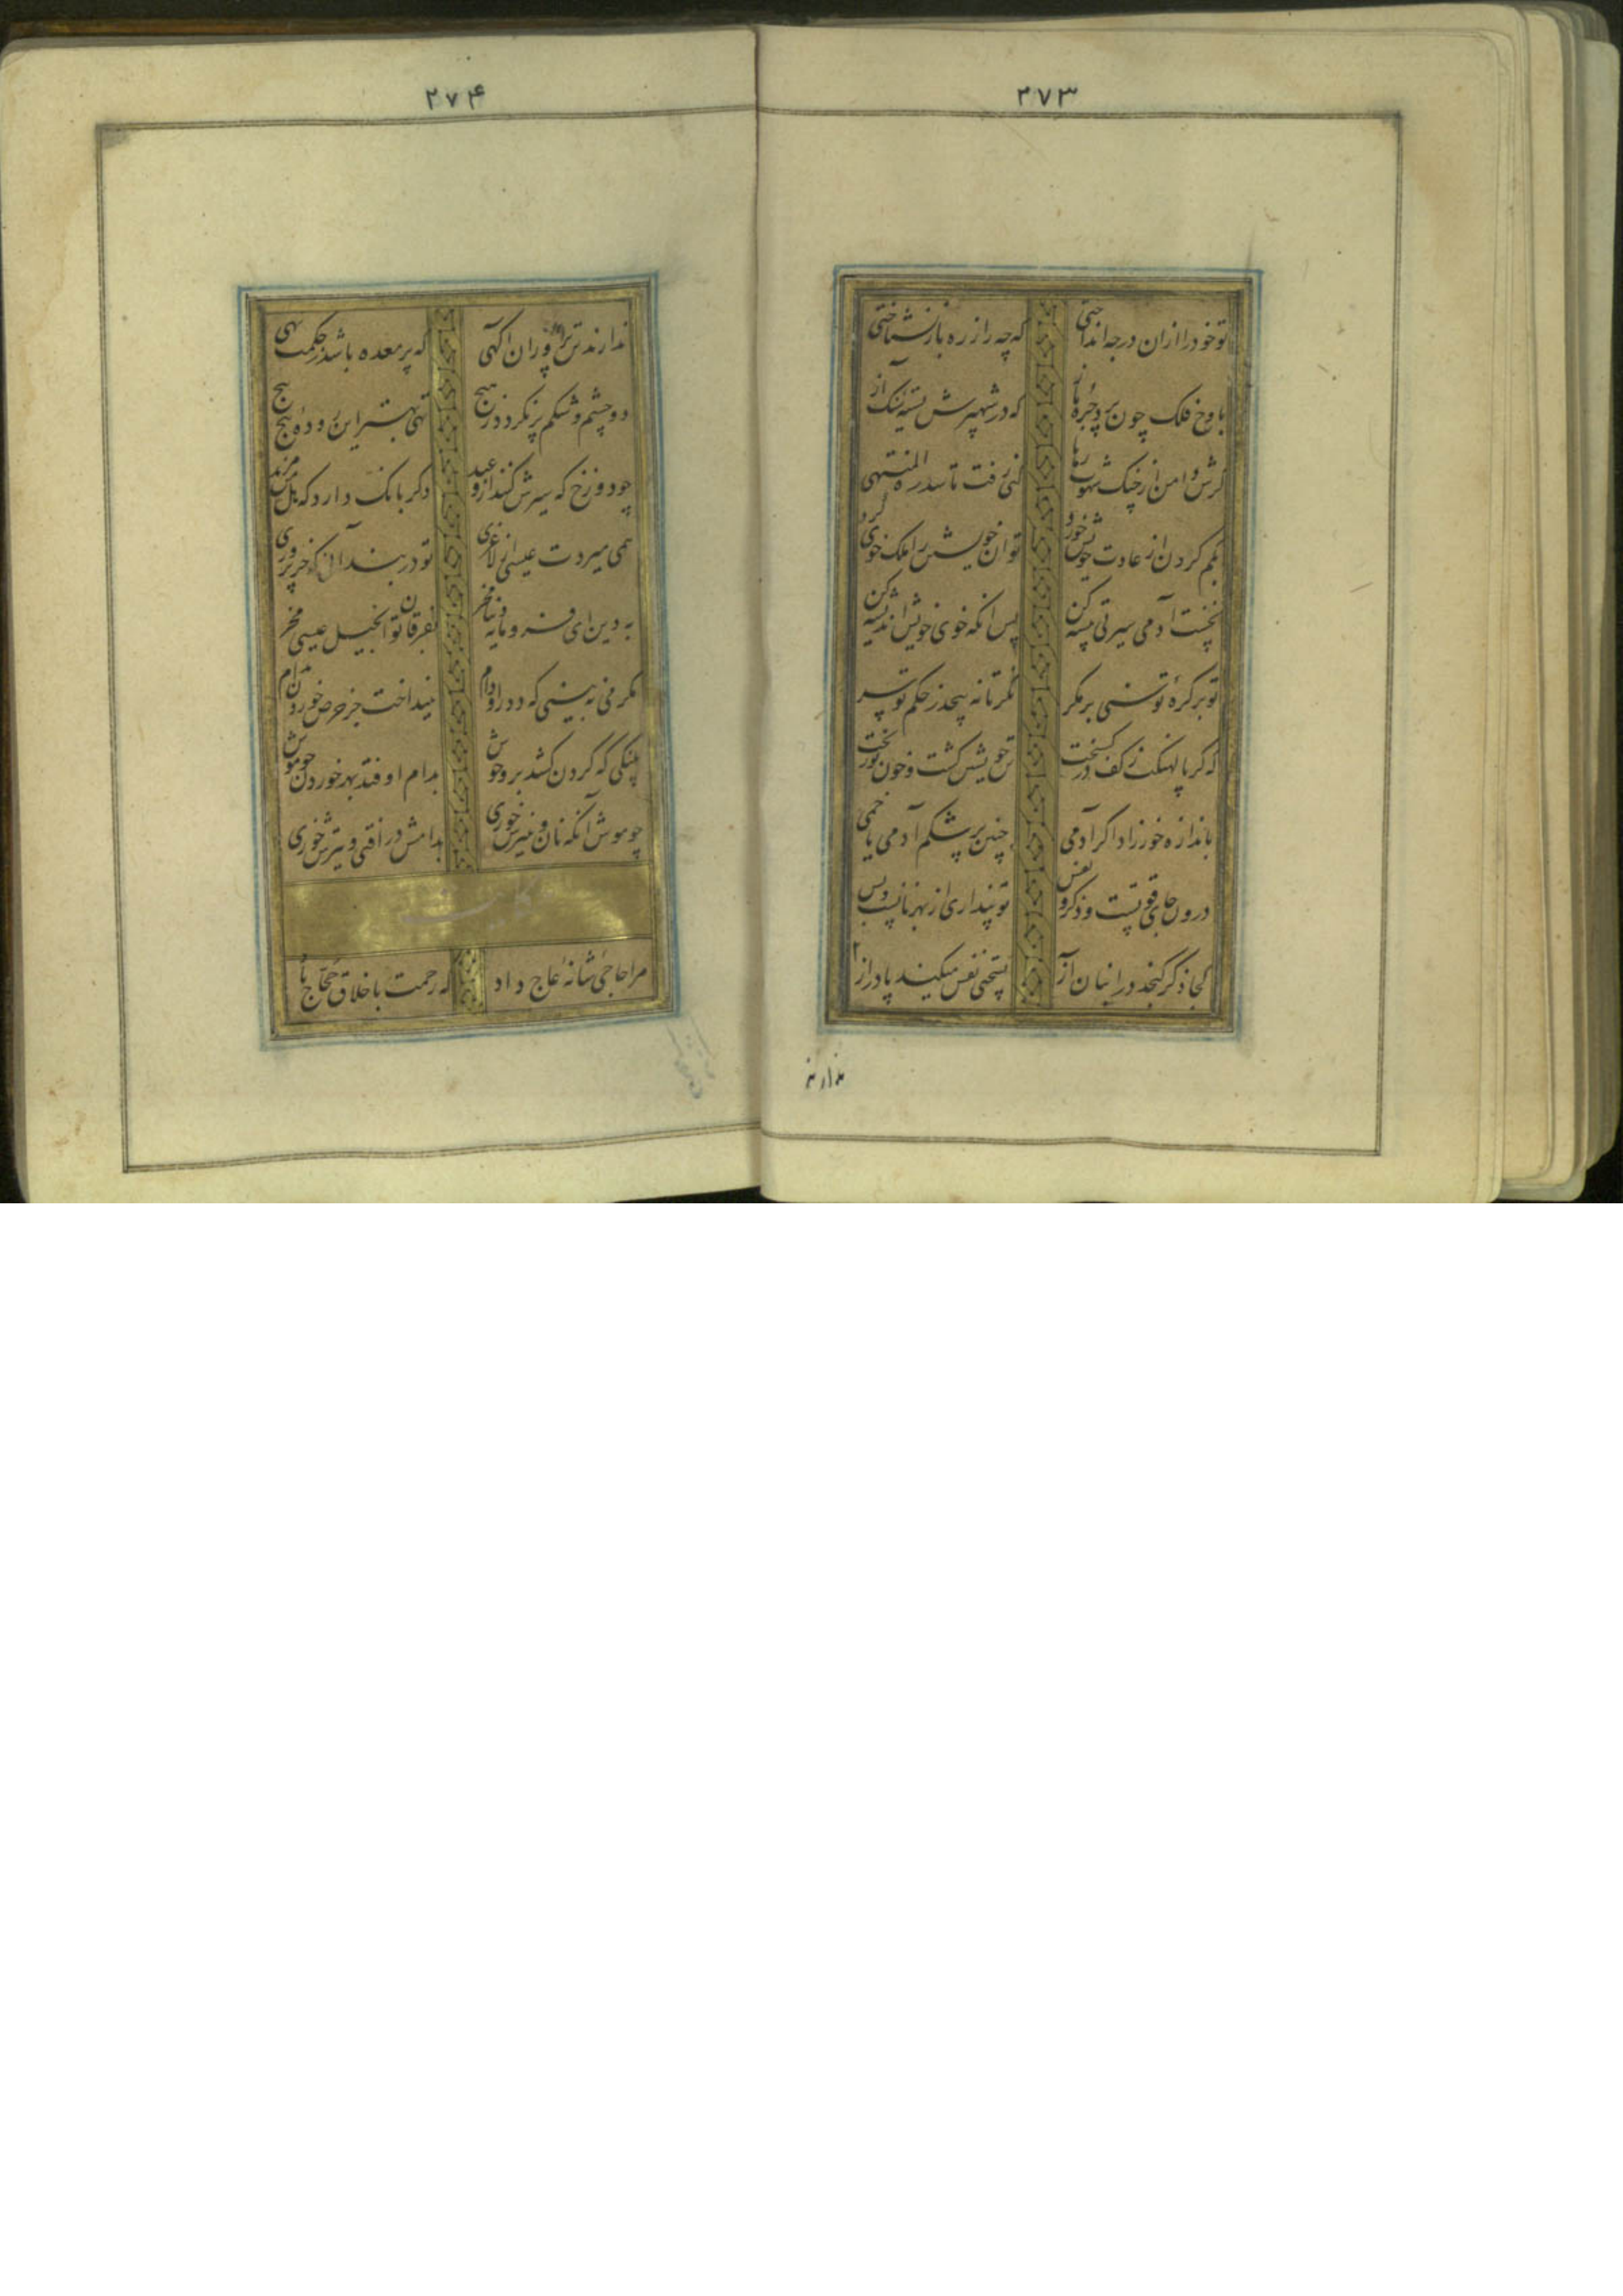 ۲۷۳
تو خود را ازان در چه انداختی که چه را ز ره باز نشناختی
باوج فلک چون پرد جره باز که در شهپرش بسته سنک آز
کرش دامن از چنک شهوت رها کنی رفت تا سدرة المنتهی
بکم کردن از عادت خویش خورد توان خویشتن را ملک خوی کرد
نخست آدمی سیرتی پیشه کن پس انکه خوی خویش اندیشه کن
تو بر کره توسنی بر مکر نکر تا نه پیچد ز حکم تو سر
که کر پالهنکت ز کف در کسیخت تن خویشتن کشت و خون تو ریخت
باندازه خور زاد اکر آدمی چنین پر شکم آدمی یا خمی
درون جای قوتست و ذکر و نفس تو پنداری از بهر نانست و بس
کجا ذکر کنجد در انبان آز بسختی نفس میکند پا دراز
۲
ندارند
۲۷۴
ندارند تن پروران اکهی که پر معده باشد ز حکمت تهی
دو چشم و شکم پر نکردد بهیچ تهی بهتر این روده پیچ پیچ
چو دوزخ که سیرش کنند از وعید دکر بانک دارد که هل من مزید
همی میردت عیسی از لاغری تو در بند آن که خر پروری
به دین ای فرومایه دنیا مخر تو خر بانجیل عیسی مخر
مکر می نه بینی که دد را و دام نینداخت جز حرص خوردن بدام
پلنکی که کردن کشد بر وحوش بدام اوفتد بهر خوردن چو موش
چو موش آنکه نان و پنیرش خوری بدامش در افتی و تیرش خوری
حکایت
مرا حاجی شانه عاج داد که رحمت با خلاق حجاج باد